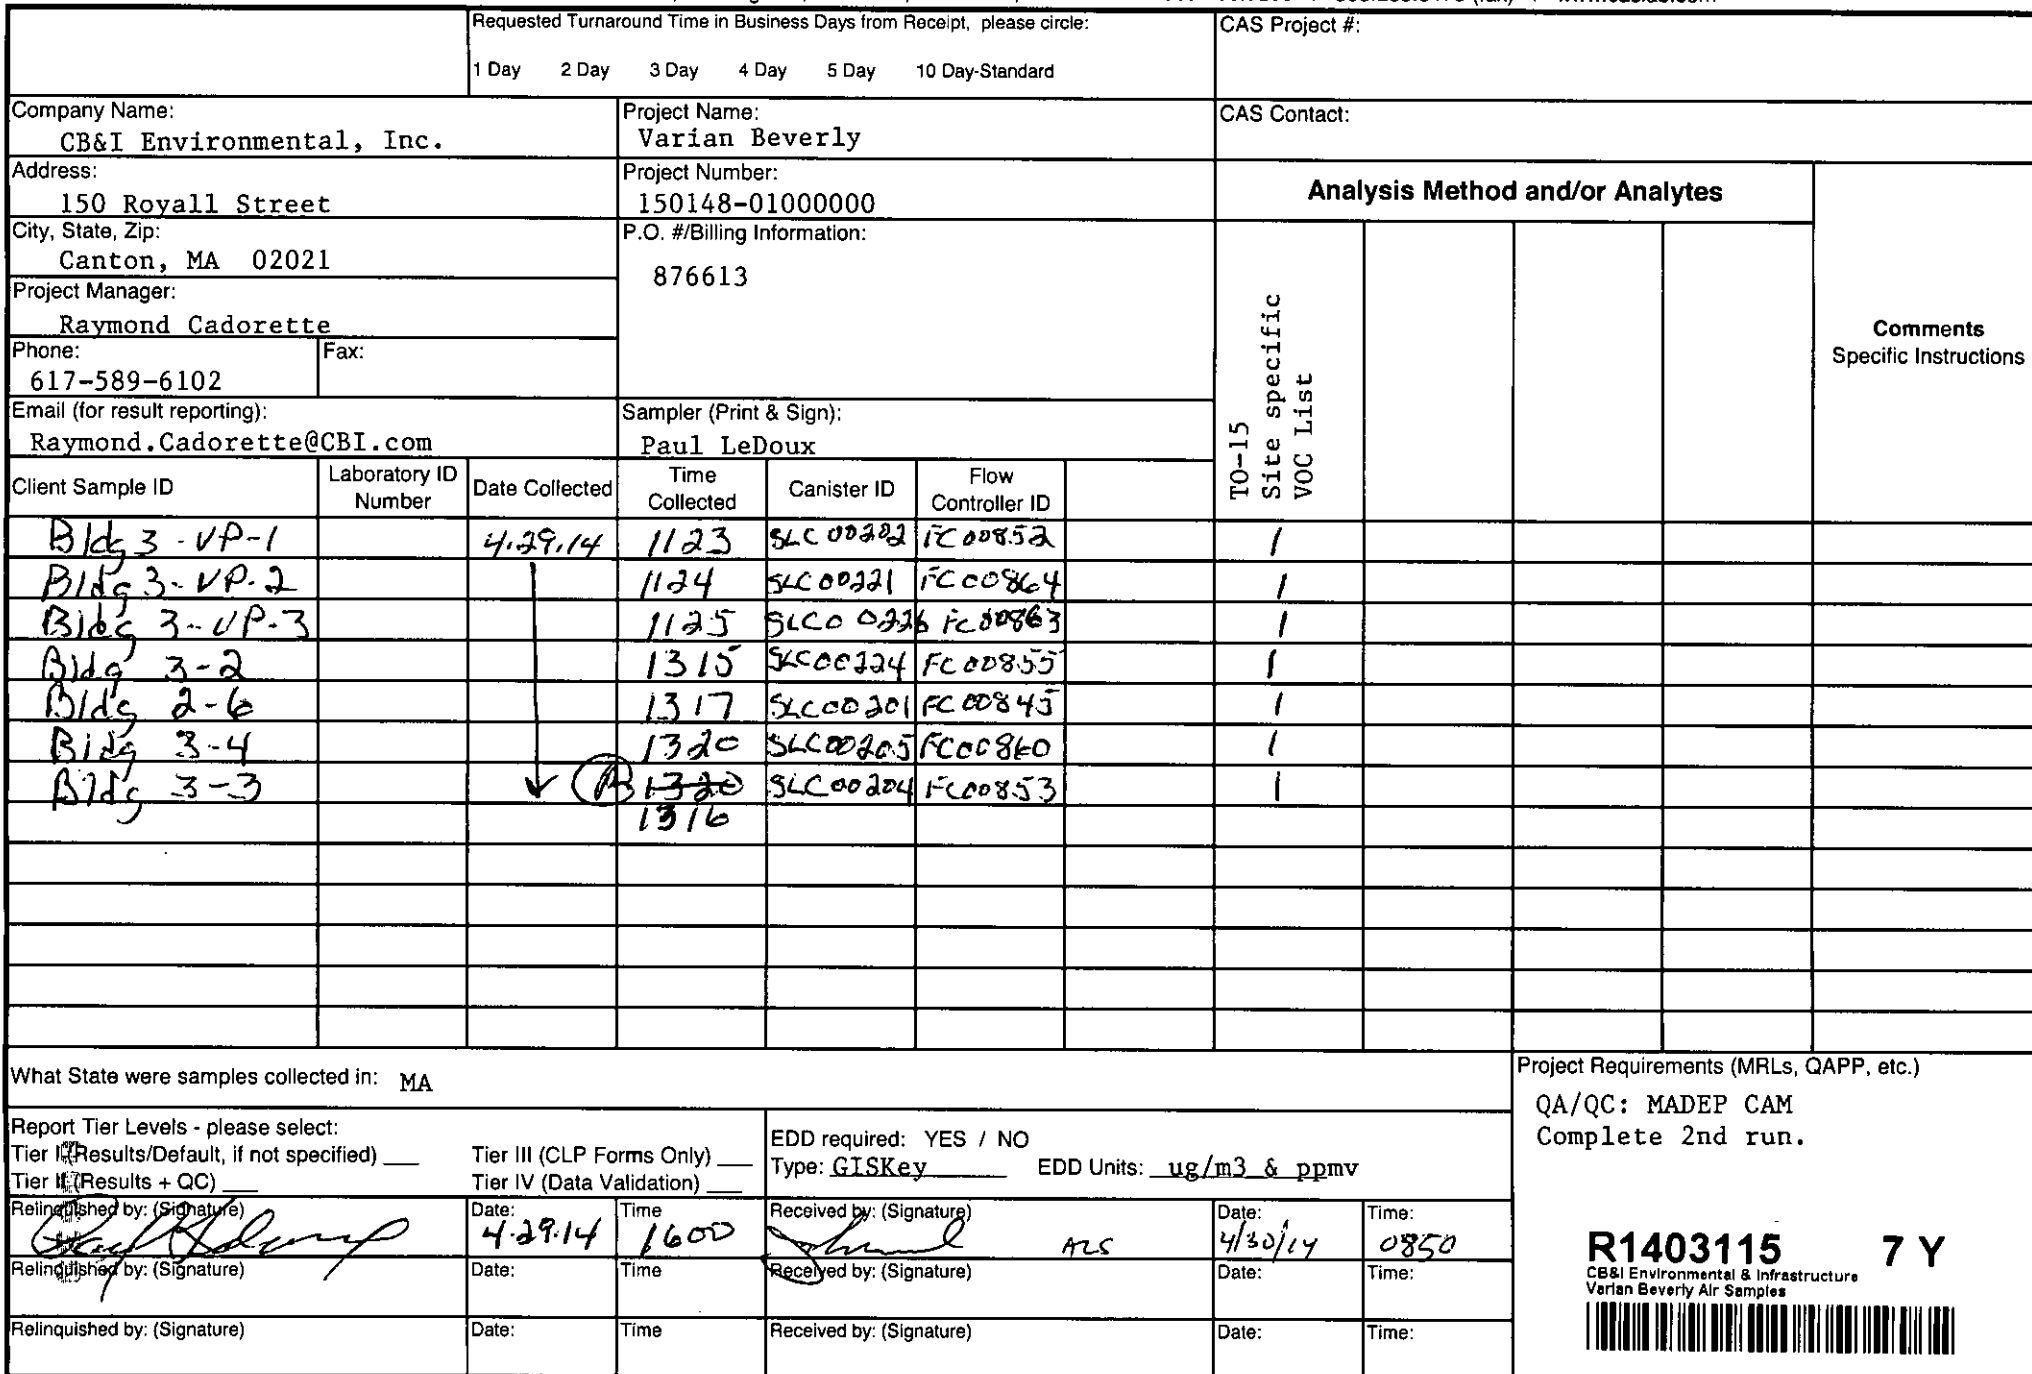 Requested Turnaround Time in Business Days from Receipt, please circle:
1 Day 2 Day 3 Day 4 Day 5 Day 10 Day-Standard
CAS Project #:
Company Name:
CB&I Environmental, Inc.
Project Name:
Varian Beverly
CAS Contact:
Address:
150 Royall Street
Project Number:
150148-01000000
Analysis Method and/or Analytes
City, State, Zip:
Canton, MA 02021
P.O. #/Billing Information:
876613
Project Manager:
Raymond Cadorette
Phone:
617-589-6102
Fax:
Comments
Specific Instructions
Email (for result reporting):
Raymond.Cadorette@CBI.com
Sampler (Print & Sign):
Paul LeDoux
TO-15
Site specific
VOC List
Client Sample ID
Laboratory ID
Number
Date Collected
Time
Collected
Canister ID
Flow
Controller ID
Bldg 3-VP-1 4.29.14 1123 SLC00202 FC00852 /
Bldg 3-VP-2 1124 SLC00221 FC00864 /
Bldg 3-VP-3 1125 SLC00226 FC00863 /
Bldg 3-2 1315 SLC00224 FC00855 /
Bldg 2-6 1317 SLC00201 FC00845 /
Bldg 3-4 1320 SLC00205 FC00860 /
Bldg 3-3 1320 SLC00204 FC00853 /
1316
What State were samples collected in: MA
Project Requirements (MRLs, QAPP, etc.)
QA/QC: MADEP CAM
Complete 2nd run.
Report Tier Levels - please select:
Tier I (Results/Default, if not specified) ___
Tier II (Results + QC) ___
Tier III (CLP Forms Only) ___
Tier IV (Data Validation) ___
EDD required: YES / NO
Type: GISKey EDD Units: ug/m3 & ppmv
Relinquished by: (Signature) Date: 4.29.14 Time 1600 Received by: (Signature) ALS Date: 4/30/14 Time: 0850
Relinquished by: (Signature) Date: Time Received by: (Signature) Date: Time:
Relinquished by: (Signature) Date: Time Received by: (Signature) Date: Time:
R1403115 7 Y
CB&I Environmental & Infrastructure
Varian Beverly Air Samples